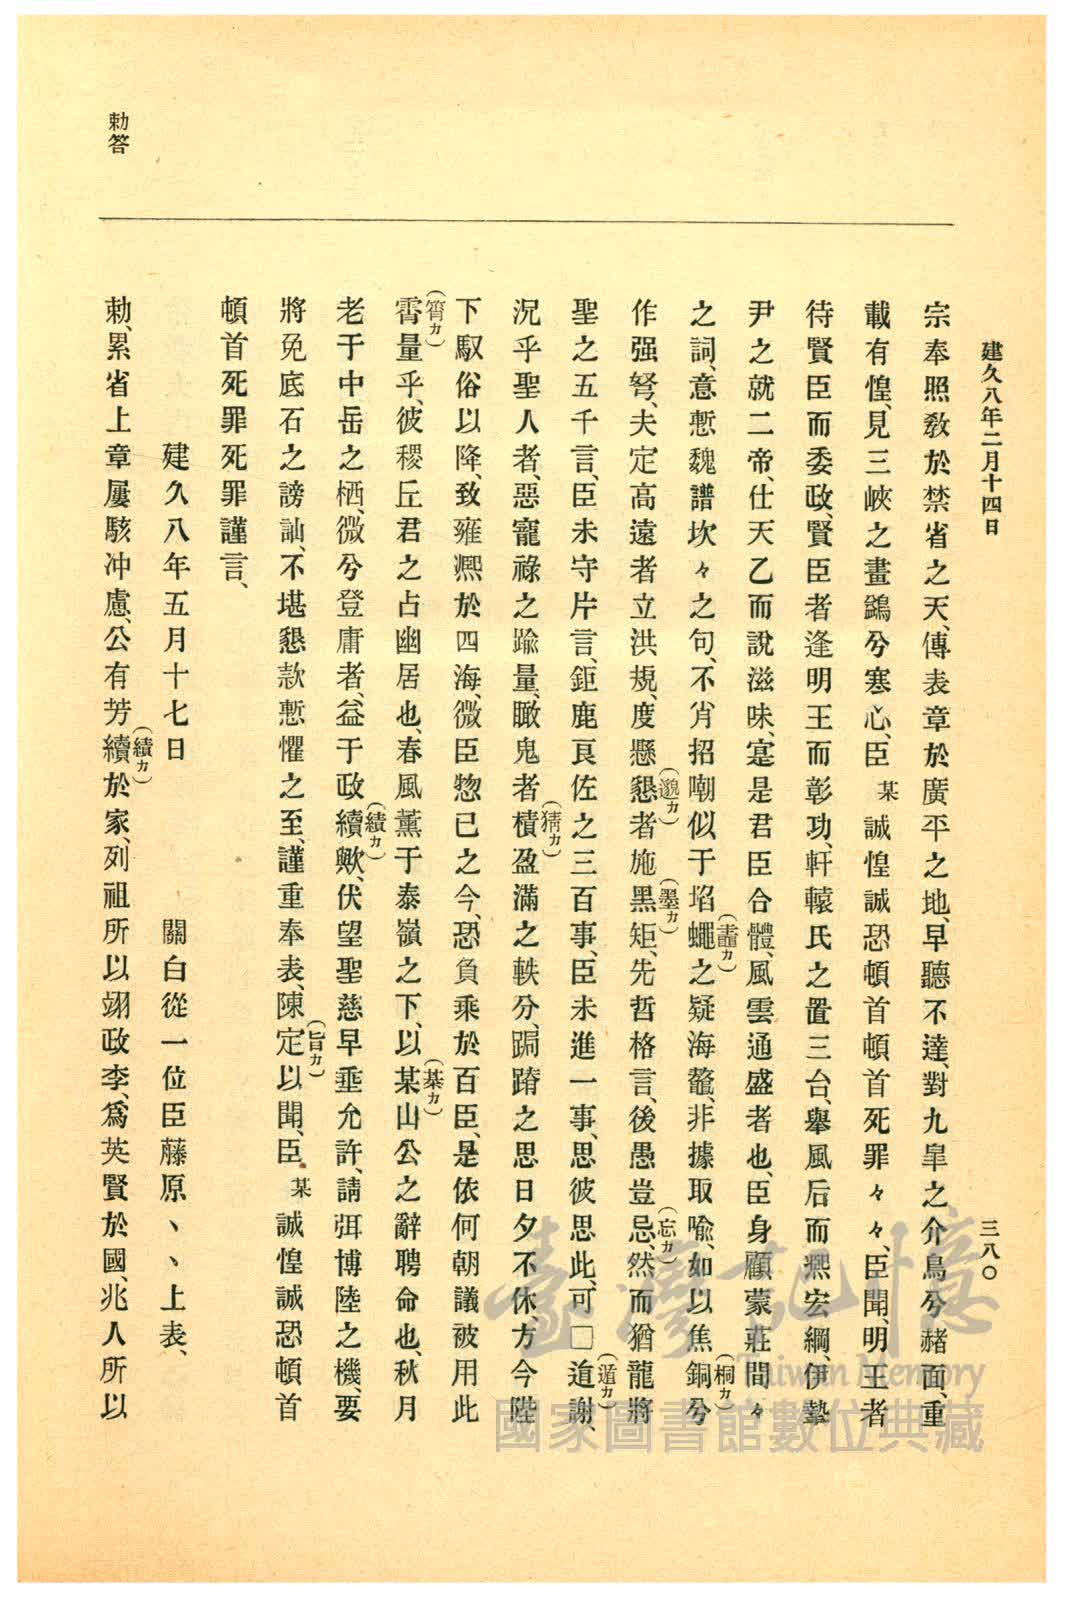 建久八年二月十四日
三八〇
宗奉照敎於禁省之天、傳表章於廣平之地、早聽不達、對九皐之介鳥兮赭面、重
載有惶、見三峽之畫鷁兮寒心、臣某誠惶誠恐頓首頓首死罪々々、臣聞、明王者
待賢臣而委政、賢臣者逢明王而彰功、軒轅氏之置三台、擧風后而凞宏綱、伊摯
尹之就二帝、仕天乙而說滋味、寔是君臣合體、風雲通盛者也、臣身顧蒙莊間々
之詞、意慙魏譜坎々之句、不肖招嘲似于埳蠅(黽カ)之疑海鼇、非據取喩、如以焦銅(桐カ)兮
作强弩、夫定高遠者立洪規、度懸懇(邈カ)者施黑(墨カ)矩、先哲格言、後愚豈忌(忘カ)、然而猶龍將
聖之五千言、臣未守片言、鉅鹿良佐之三百事、臣未進一事、思彼思此、可□道(遁カ)謝、
況乎聖人者、惡寵祿之踰量、瞰鬼者樍(猜カ)盈滿之軼分、跼蹐之思日夕不休、方今陛
下馭俗以降、致雍凞於四海、微臣惣已之今、恐負乘於百臣、是依何朝議被用此
霄(筲カ)量乎、彼稷丘君之占幽居也、春風薰于泰嶺之下、以某(綦カ)山公之辭聘命也、秋月
老于中岳之栖、微兮登庸者、益于政續(績カ)歟、伏望聖慈早垂允許、請弭博陸之機、要
將免底石之謗訕、不堪懇款慙懼之至、謹重奉表、陳定(旨カ)以聞、臣某誠惶誠恐頓首
頓首死罪死罪謹言、
建久八年五月十七日
關白從一位臣藤原丶丶上表、
勅答
勅、累省上章屢駭冲慮、公有芳續(績カ)於家、列祖所以翊政李、爲英賢於國、兆人所以
臺灣記憶
Taiwan Memory
國家圖書館數位典藏